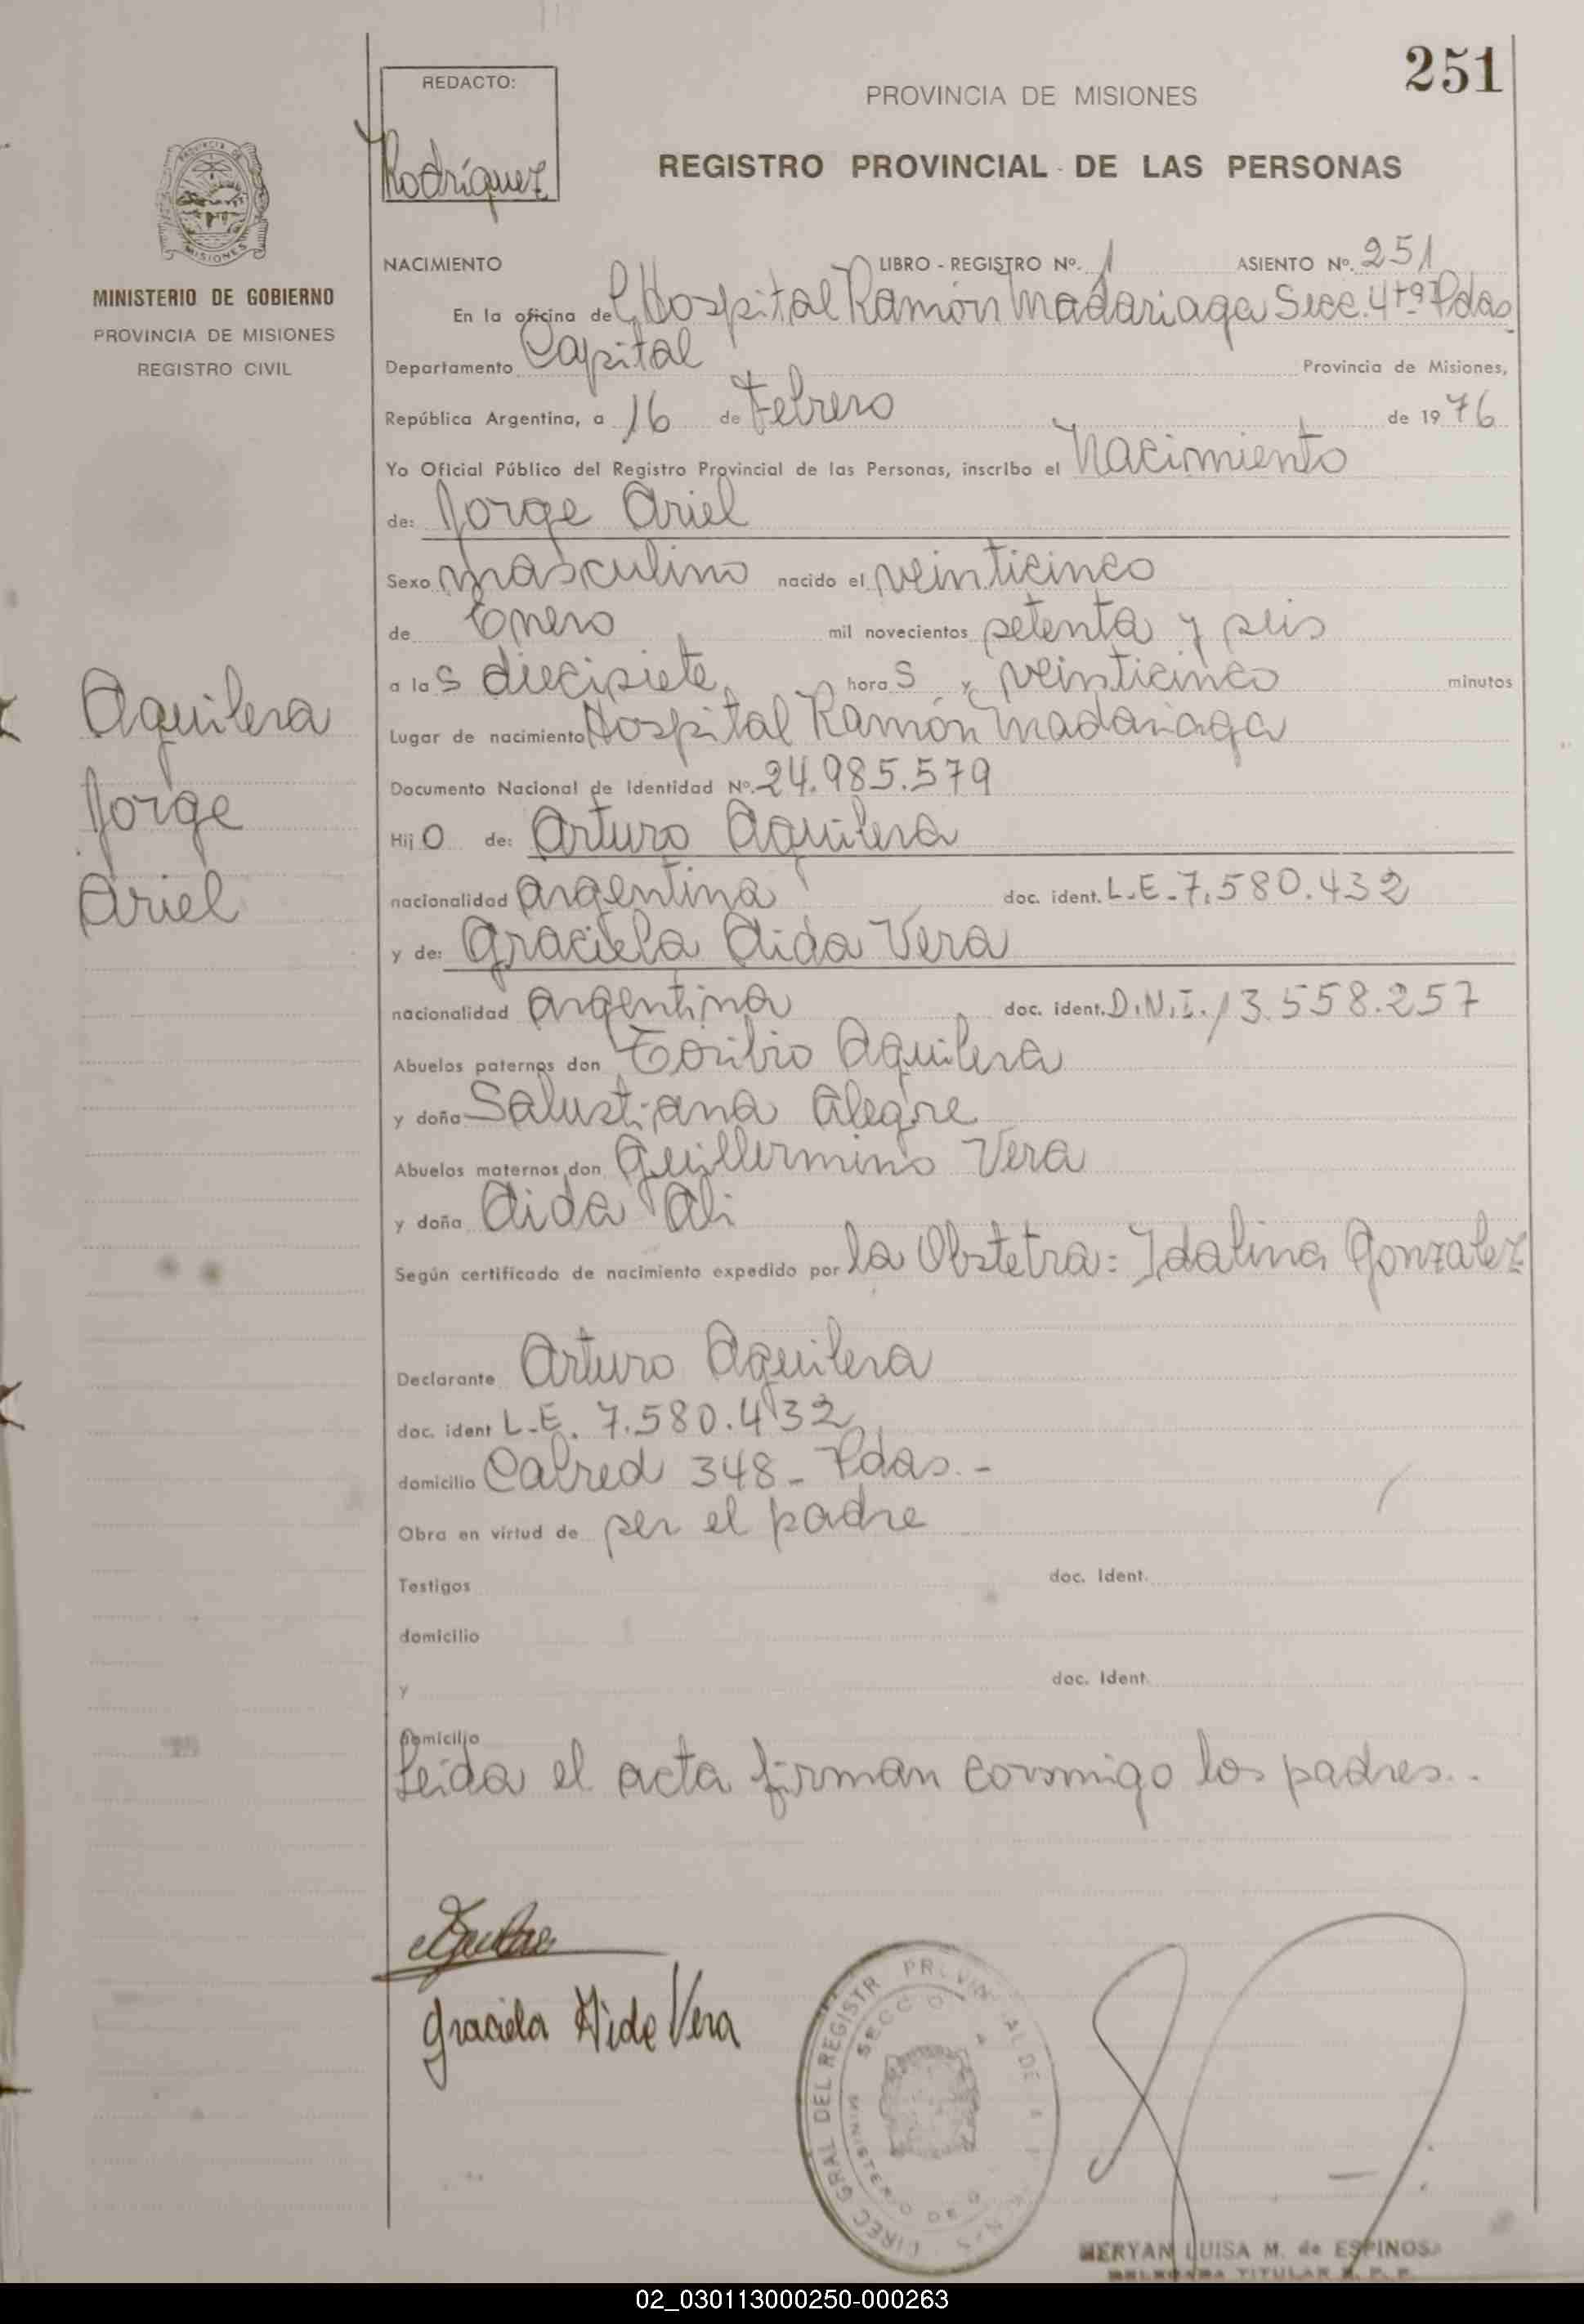 251
REDACTO:
Rodríguez
PROVINCIA DE MISIONES
REGISTRO PROVINCIAL DE LAS PERSONAS
MINISTERIO DE GOBIERNO
PROVINCIA DE MISIONES
REGISTRO CIVIL
Aguilera
Jorge
Ariel
NACIMIENTO LIBRO - REGISTRO Nº. 1 ASIENTO Nº. 251
En la oficina del Hospital Ramón Madariaga Secc. 4ta Pdas
Departamento Capital Provincia de Misiones,
República Argentina, a 16 de Febrero de 1976
Yo Oficial Público del Registro Provincial de las Personas, inscribo el Nacimiento
de: Jorge Ariel
Sexo masculino nacido el veinticinco
de Enero mil novecientos setenta y seis
a las diecisiete horas y veinticinco minutos
Lugar de nacimiento Hospital Ramón Madariaga
Documento Nacional de Identidad Nº. 24.985.579
Hijo de: Arturo Aguilera
nacionalidad argentina doc. ident. L.E. 7.580.432
y de: Graciela Aida Vera
nacionalidad argentina doc. ident. D.N.I. 13.558.257
Abuelos paternos don Toribio Aguilera
y doña Salustiana Alegre
Abuelos maternos don Guillermino Vera
y doña Aida Ali
Según certificado de nacimiento expedido por la Obstetra: Idalina Gonzalez
Declarante Arturo Aguilera
doc. ident L.E. 7.580.432
domicilio Cabred 348 - Pdas. -
Obra en virtud de ser el padre
Testigos doc. Ident.
domicilio
y doc. Ident.
domicilio
Leida el acta firman conmigo los padres. -
Graciela Aida Vera
DIREC GRAL DEL REGISTR PROVINCIAL DE
MERYAN LUISA M. de ESPINOSA
DELEGADA TITULAR R. P. P.
02_030113000250-000263